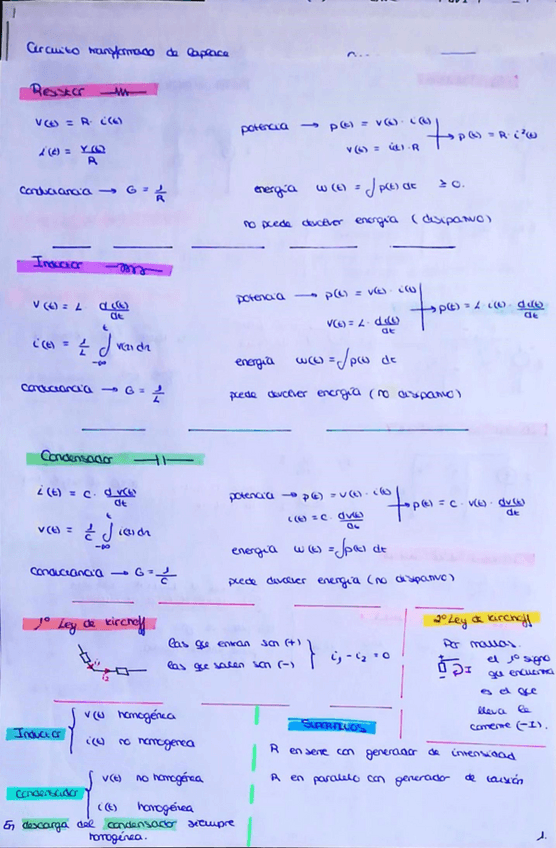 1
Circuito transformado de Laplace
Resistor
v(t) = R · i(t)
i(t) = v(t)/R
conductancia → G = 1/R
potencia → p(t) = v(t) · i(t)
v(t) = i(t) · R
→ p(t) = R · i²(t)
energía w(t) = ∫p(t) dt ≥ 0.
no puede devolver energía (disipativo)
Inductor
v(t) = L · di(t)/dt
i(t) = 1/L ∫ v(λ) dλ
t
-∞
conductancia → G = 1/L
potencia → p(t) = v(t) · i(t)
v(t) = L · di(t)/dt
→ p(t) = L · i(t) · di(t)/dt
energía w(t) = ∫p(t) dt
puede devolver energía (no disipativo)
Condensador
i(t) = C · dv(t)/dt
v(t) = 1/C ∫ i(λ) dλ
t
-∞
conductancia → G = 1/C
potencia → p(t) = v(t) · i(t)
i(t) = C · dv(t)/dt
→ p(t) = C · v(t) · dv(t)/dt
energía w(t) = ∫p(t) dt
puede devolver energía (no disipativo)
1º Ley de Kirchoff
i₁
i₂
Las que entran son (+)
Las que salen son (-)
i₁ - i₂ = 0
2º Ley de Kirchoff
Por mallas.
I
el 1º signo
que encuentra
es el que
lleva la
corriente (-I).
Inductor
v(t) homogénea
i(t) no homogenea
Condensador
v(t) no homogénea
i(t) homogénea
En descarga del condensador siempre
homogénea.
Superfluos
R en serie con generador de intensidad
R en paralelo con generador de tensión
1.